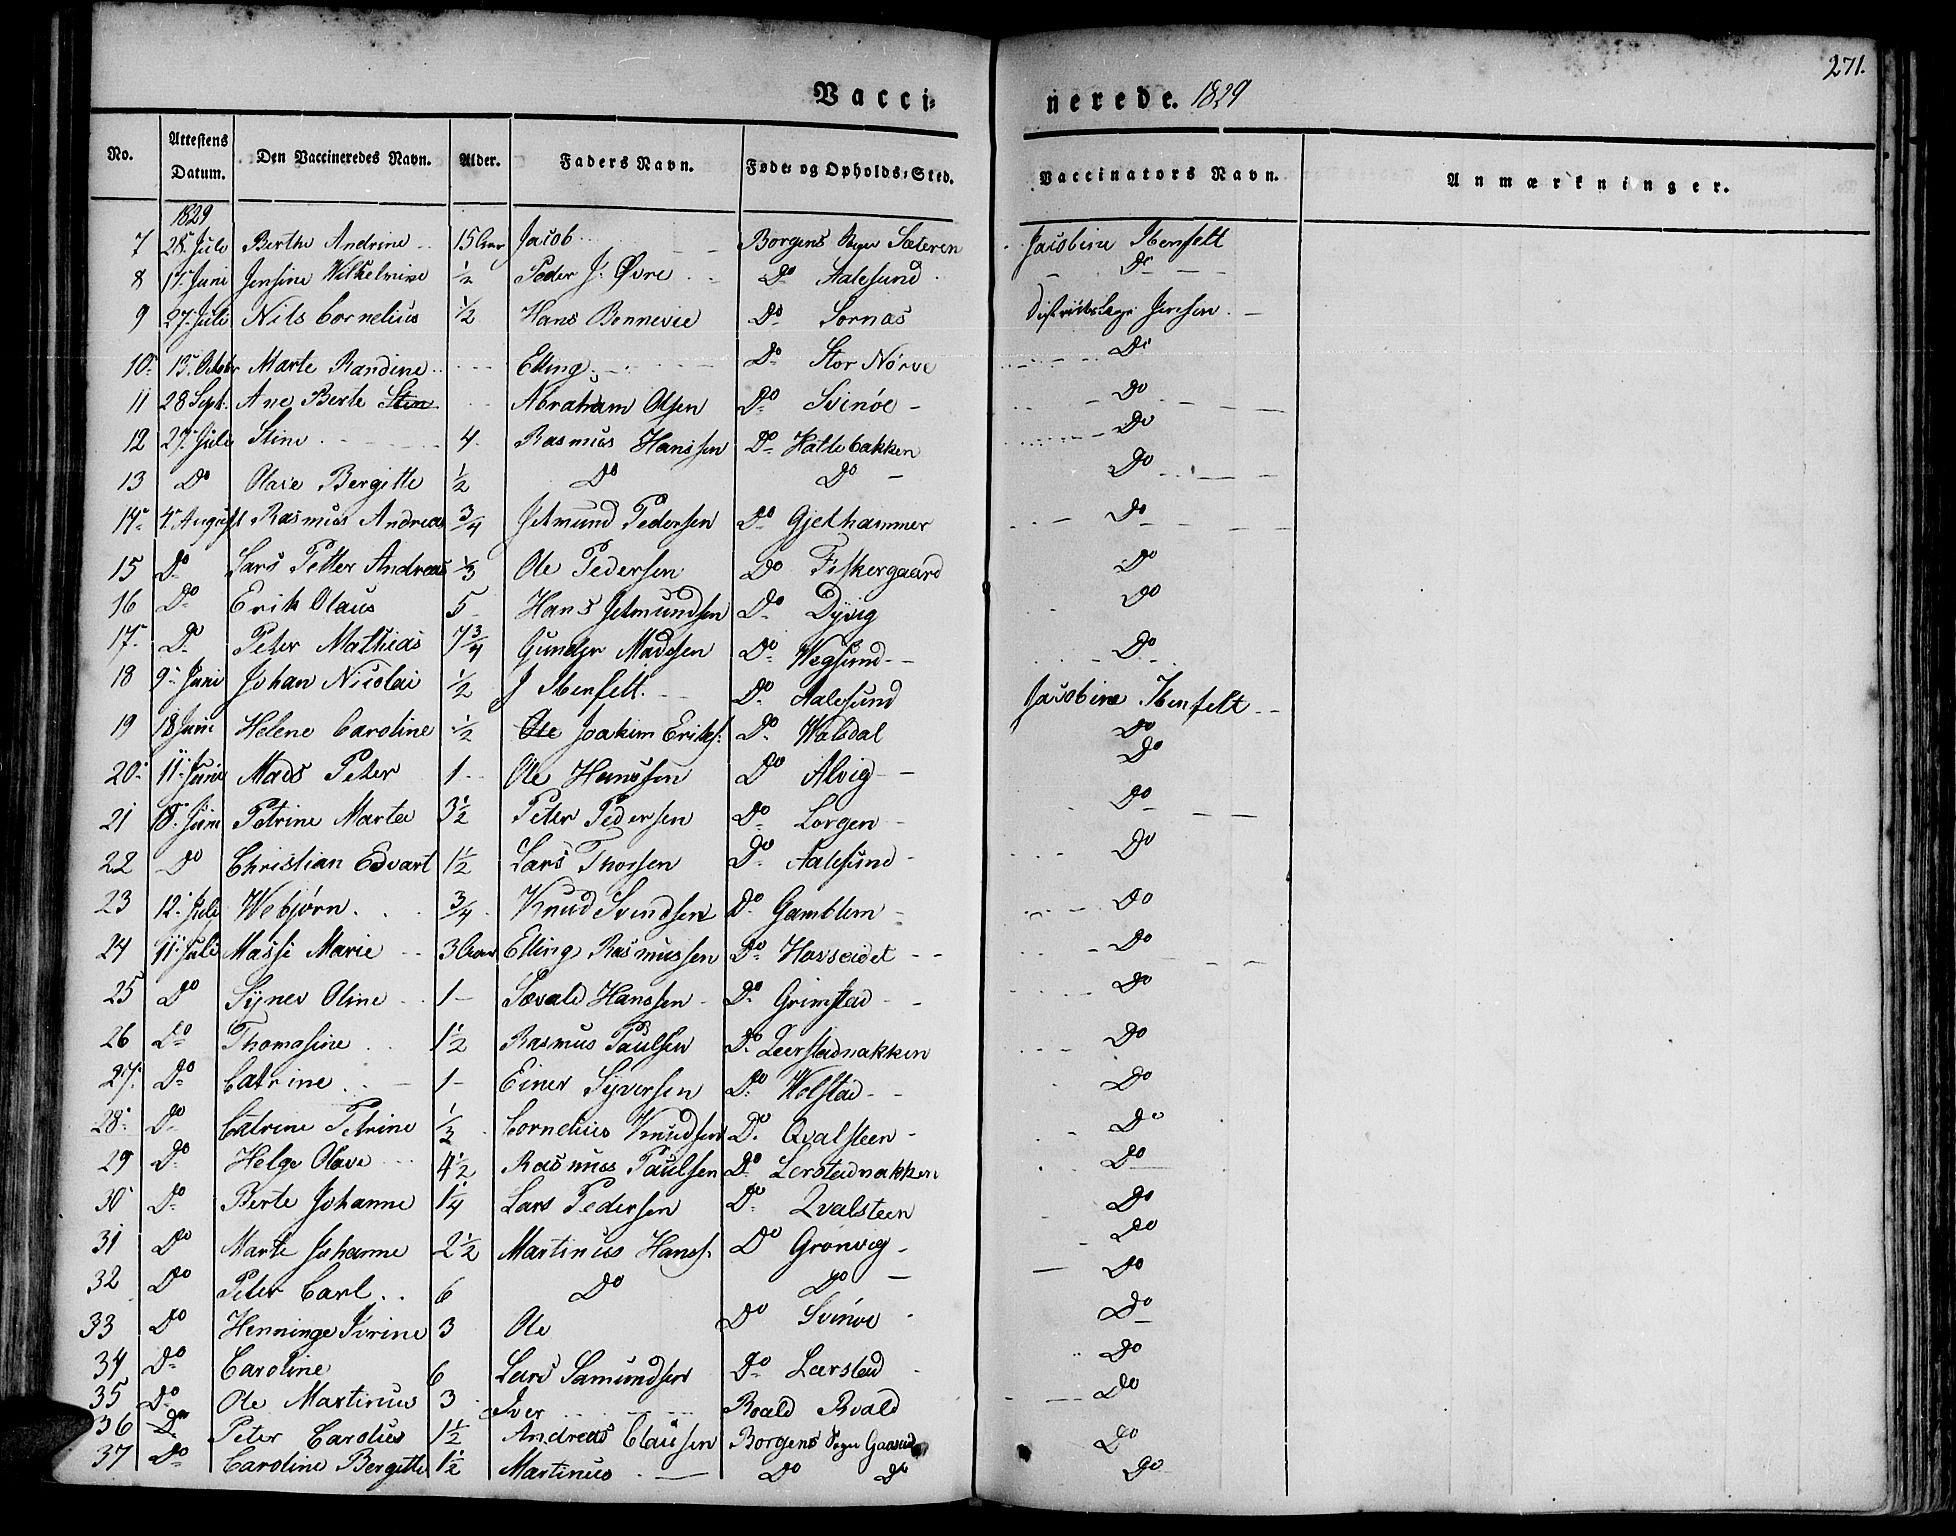 271.
Vacci= nerede. 1829
No. | Attestens Datum. | Den Vaccineredes Navn. | Alder. | Faders Navn. | Føde= og Opholds=Sted. | Vaccinators Navn. | Anmærkninger.
1829
7 | 28 Juli | Berthe Andrine | 15 Aar | Jacob | Borgens Sogn Sæteren | Jacobine Ibenfelt
8 | 15 Juni | Jensine Wilhelmine | ½ | Peder J. Øvre | Do Aalesund | Do
9 | 27 Juli | Nils Cornelius | ½ | Hans Bonnevie | Do Sornæs | Districtslæge Jensen
10 | 13 October | Marte Randine | Elling | Do Stor Nørve | Do
11 | 28 Sept. | Ane Berte Stin | Abraham Olsen | Do Svinøe | Do
12 | 27 Juli | Stine | 4 | Rasmus Hanssen | Do Hatlebakken | Do
13 | Do | Olave Bergitte | ½ | Do | Do | Do
14 | 4 August | Rasmus Andreas | ¾ | Jetmund Pedersen | Do Gjethammer | Do
15 | Do | Lars Petter Andreas | ⅓ | Ole Pedersen | Do Fiskergaard | Do
16 | Do | Erik Olaus | 5 | Hans Jetmundsen | Do Dyvig | Do
17 | Do | Peter Mathias | 7¾ | Gunder Madssen | Do Wegsund | Do
18 | 9 Juni | Johan Nicolai | ½ | J Ibenfelt | Do Aalesund | Jacobine Ibenfelt
19 | 18 Juni | Helene Caroline | ½ | Ole Joakim Eriks. | Do Walsdal | Do
20 | 11 Juni | Mads Peter | 1 | Ole Hanssen | Do Alvig | Do
21 | 18 Juni | Petrine Marta | 3½ | Peter Pedersen | Do Lorgen | Do
22 | Do | Christian Edvart | 1½ | Lars Thorsen | Do Aalesund | Do
23 | 12 Juli | Webjørn | ¾ | Knud Svendsen | Do Gamblem | Do
24 | 11 Juli | Massi Marie | 3 Aar | Elling Rasmussen | Do Havseidet | Do
25 | Do | Synev Oline | 1 | Sævald Hanssen | Do Grimstad | Do
26 | Do | Thomasine | 1½ | Rasmus Paulsen | Do Leerstadnakken | Do
27 | Do | Catrine | 1 | Einer Syversen | Do Wolstad | Do
28 | Do | Catrine Petrine | ½ | Cornelius Knudsen | Do Qvalsteen | Do
29 | Do | Helge Olave | 4½ | Rasmus Paulsen | Do Lerstadnakken | Do
30 | Do | Berte Johanne | 1¼ | Lars Pedersen | Do Qvalsteen | Do
31 | Do | Marte Johanne | 2½ | Martinus Hanss. | Do Grønvig | Do
32 | Do | Peter Carl | 6 | Do | Do | Do
33 | Do | Henninge Ivrine | 3 | Ole | Do Svinøe | Do
34 | Do | Caroline | 6 | Lars Samundsen | Do Lærstad | Do
35 | Do | Ole Martinus | 3 | Iver | Roald Roald | Do
36 | Do | Peter Carolus | 1½ | Andreas Clausen | Borgens Sogn | Do
37 | Do | Caroline Bergitte | 1½ | Martinus | Do Do | Do